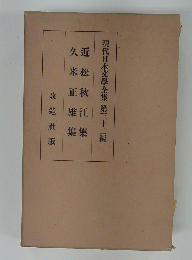 現代日本文學全集 第三十二編
近松秋江集
久米正雄集
改造社版